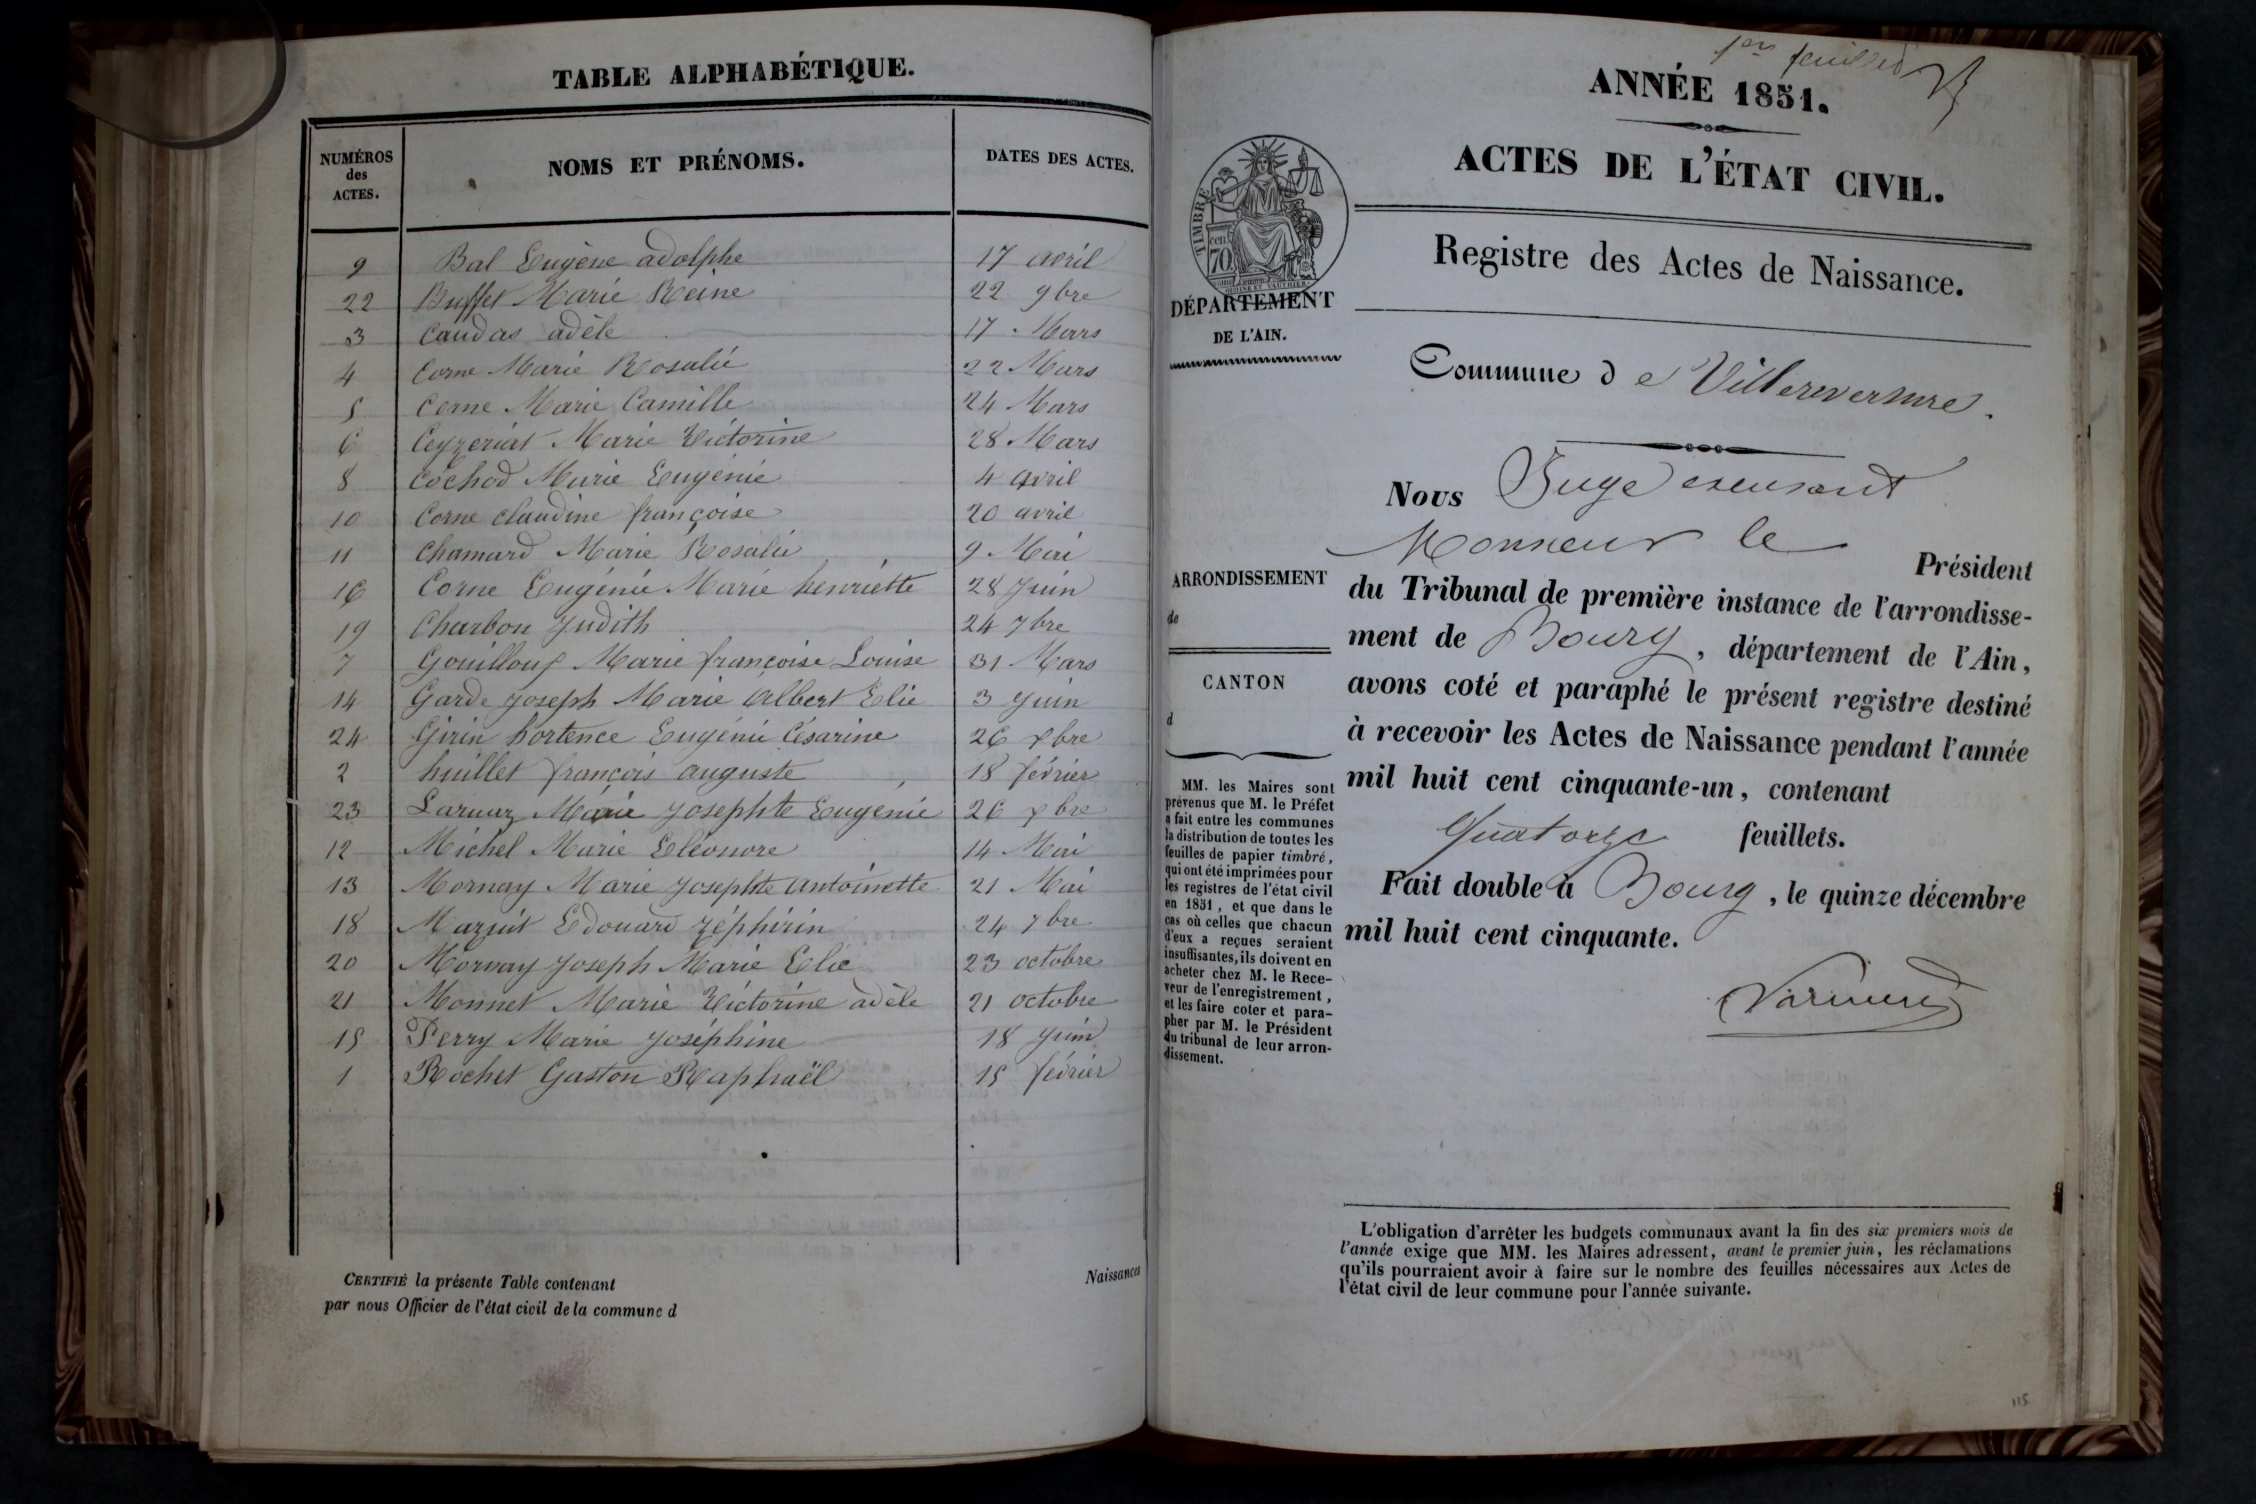 TABLE ALPHABÉTIQUE.
NUMÉROS des ACTES. NOMS ET PRÉNOMS. DATES DES ACTES.
9 Bal Eugène adolphe 17 avril
22 Buffet Marie Reine 22 9bre
3 Caudas adèle 17 Mars
4 Corne Marie Rosalie 22 Mars
5 Corne Marie Camille 24 Mars
6 Ceyzeriat Marie Victorine 28 Mars
8 Cochod Marie Eugénie 4 avril
10 Corne claudine françoise 20 avril
11 Chamard Marie Rosalie 9 Mai
16 Corne Eugénie Marie henriette 28 Juin
19 Charbon Judith 24 7bre
7 Gouilloux Marie françoise Louise 31 Mars
14 Garde Joseph Marie Albert Elie 3 Juin
24 Girin hortence Eugénie Césarine 26 xbre
2 huillet françois auguste 18 février
23 Laruaz Marie Josephte Eugénie 26 xbre
12 Michel Marie Eléonore 14 Mai
13 Mornay Marie Josephte Antoinette 21 Mai
18 Edouard Zéphirin 24 7bre
20 Mornay Joseph Marie Elie 23 octobre
21 Monnet Marie Victorine adèle 21 octobre
15 Perry Marie Joséphine 18 Juin
1 Rochet Gaston Raphaël 15 février
CERTIFIÉ la présente Table contenant Naissances
par nous Officier de l'état civil de la commune d
1er feuillet
ANNÉE 1851.
ACTES DE L'ÉTAT CIVIL.
Registre des Actes de Naissance.
TIMBRE
70 cent.
DÉPARTEMENT
DE L'AIN.
Commune de Villereversure.
Nous Juge excusant
Monsieur le Président
du Tribunal de première instance de l'arrondisse-
ment de Bourg, département de l'Ain,
avons coté et paraphé le présent registre destiné
à recevoir les Actes de Naissance pendant l'année
mil huit cent cinquante-un, contenant
Quatorze feuillets.
Fait double à Bourg, le quinze décembre
mil huit cent cinquante.
ARRONDISSEMENT
de
CANTON
d
MM. les Maires sont
prévenus que M. le Préfet
a fait entre les communes
la distribution de toutes les
feuilles de papier timbré,
qui ont été imprimées pour
les registres de l'état civil
en 1851, et que dans le
cas où celles que chacun
d'eux a reçues seraient
insuffisantes, ils doivent en
acheter chez M. le Rece-
veur de l'enregistrement,
et les faire coter et para-
pher par M. le Président
du tribunal de leur arron-
dissement.
L'obligation d'arrêter les budgets communaux avant la fin des six premiers mois de
l'année exige que MM. les Maires adressent, avant le premier juin, les réclamations
qu'ils pourraient avoir à faire sur le nombre des feuilles nécessaires aux Actes de
l'état civil de leur commune pour l'année suivante.
115